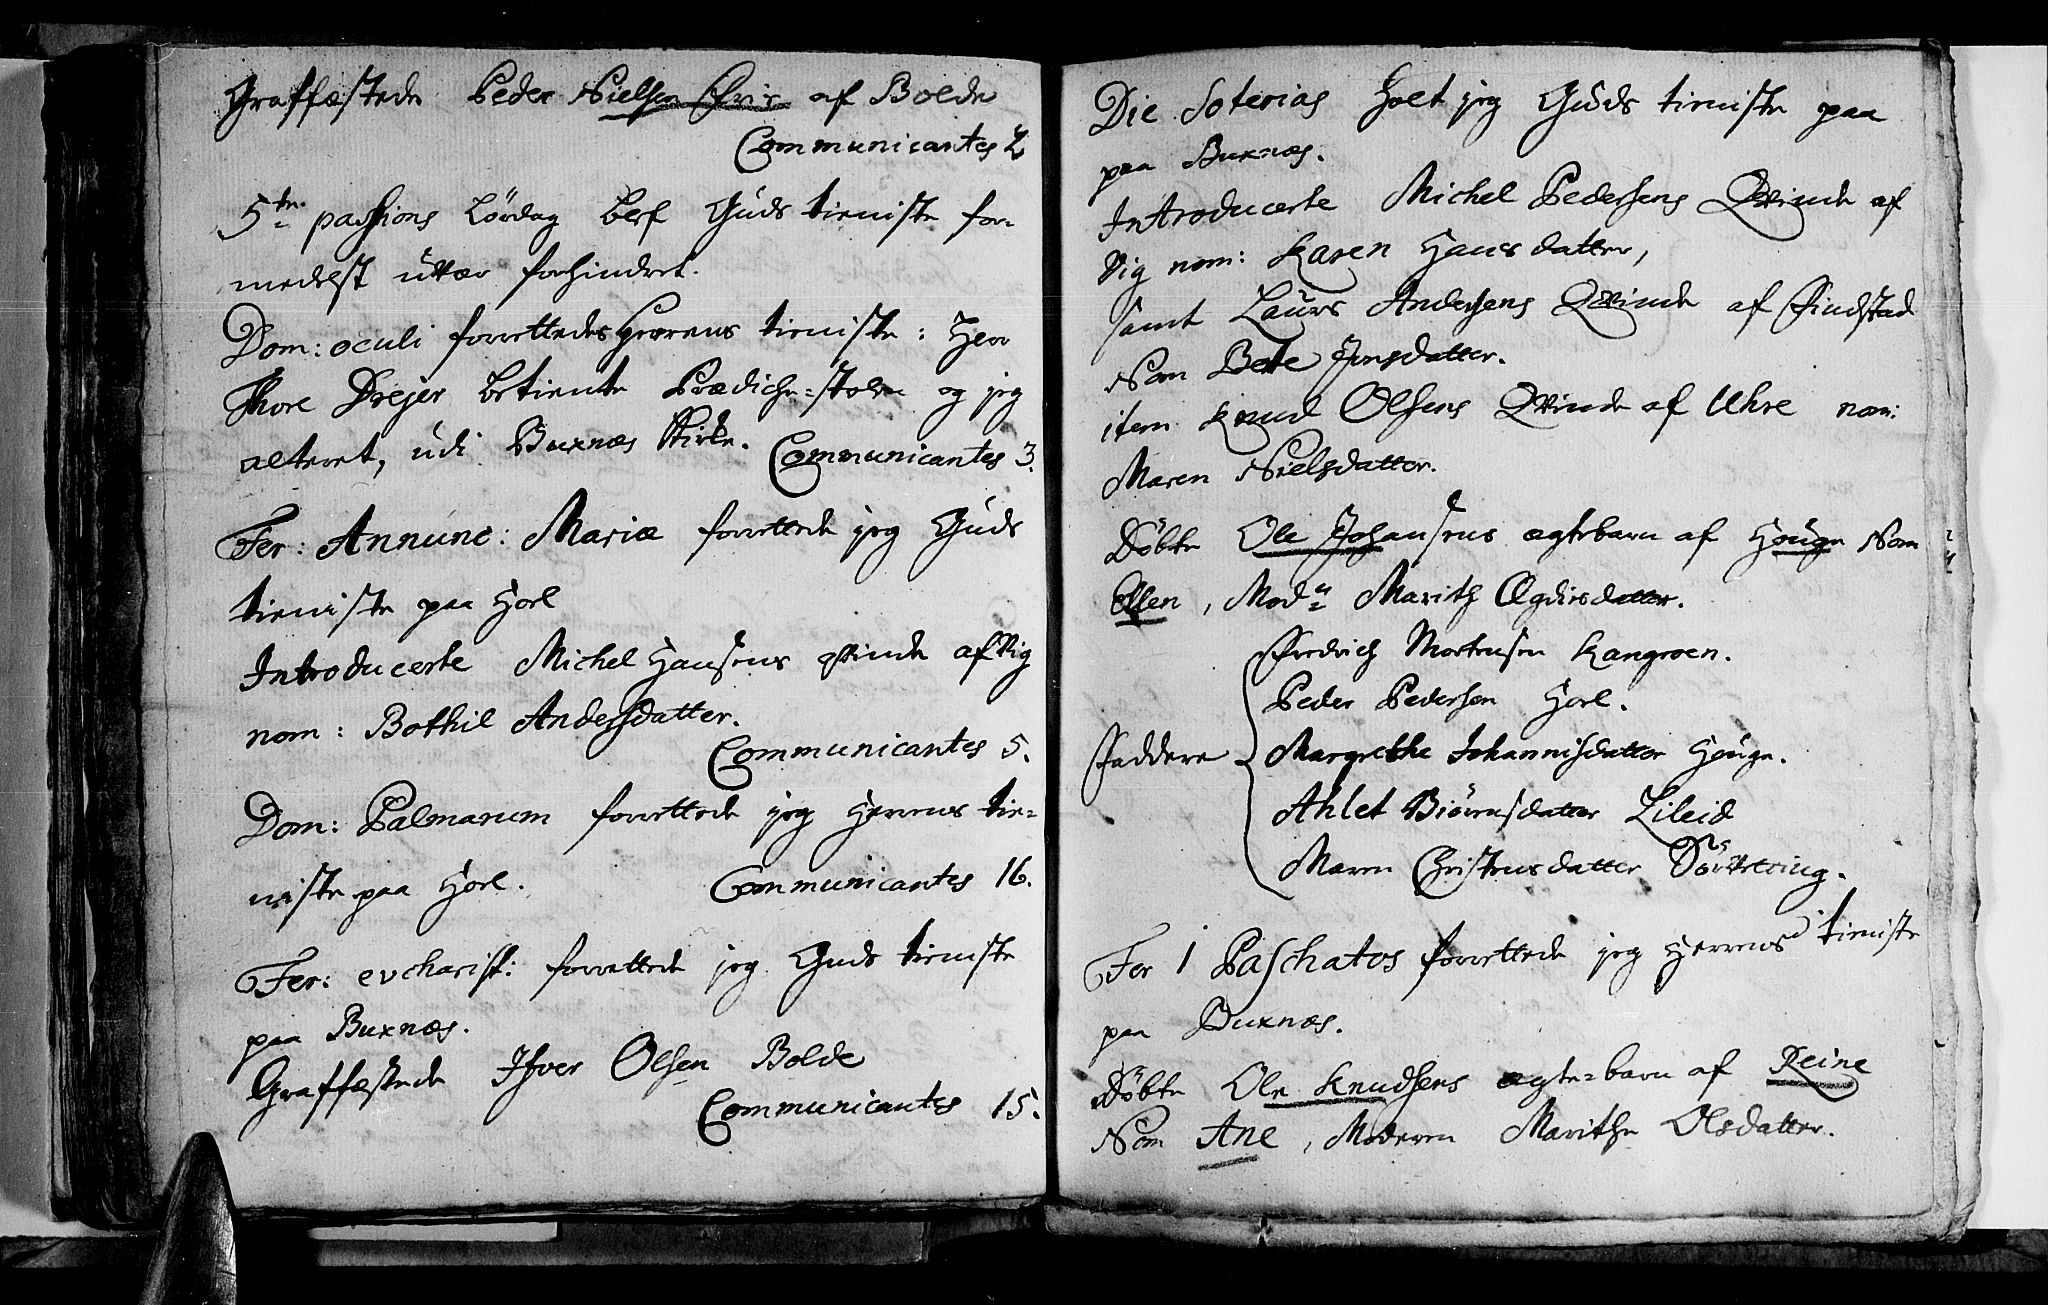 Graffæstede Peder Nielsen Qvix af Bolde
Communicantes 2
5te passions Lørdag blef Guds tieniste for-
medelst uvær forhindret.
Dom: oculi forrettedes Herrens tieniste: Herr
Thore Drejer betiente Prædiche-stolen og jeg
alteret, udi Buxnæs Kirke. Communicantes 3.
Fer: Annunc: Mariæ forrettede jeg Guds
tieniste paa Horl
Introducerte Michel Hansens qvinde af Vig
nom: Bothil Andersdatter.
Communicantes 5.
Dom: Palmarum forrettede jeg Herrens tie-
niste paa Horl. Communicantes 16.
Fer: evcharist: forrettede jeg Guds tieniste
paa Buxnæs.
Graffæstede Ifver Olsen Bolde
Communicantes 15.
Die Soterias holt jeg Guds tieniste paa
paa Buxnæs.
Introducerte Michel Pedersens Qvinde af
Vig nom: Karen Hansdatter,
samt Laurs Andersens Qvinde af Findstad
Nom Bete Jonsdatter.
item Knud Olsens Qvinde af Uhre nom:
Maren Nielsdatter.
Døbte Ole Johansens ægtebarn af Houge Nom
Elsen, Modn Marith Ægdisdatter.
Fredrich Mortensen Kangroen.
Peder Pedersen Horl.
Faddere Margrethe Johannisdatter Houge.
Ahlet Biørnsdatter Lileid
Maren Christensdatter
Fer 1 Paschatos forrettede jeg Herrens tieniste
paa Buxnæs.
Døbte Ole Knudsens ægte-barn af Reine
Nom Ane, Moderen Marithe Olsdatter.